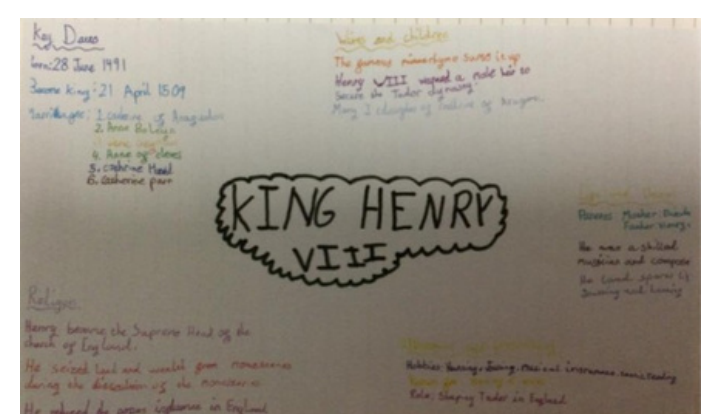 Key Dates
born: 28 June 1491
Become King: 21 April 1509
Marriages: 1. Catherine of Aragadon
2. Anne Boleyn
4. Anne of cleves
5. Cathrine Howd
6. Catherine parr
Wives and children
The famous sums it up
Henry VIII wanted a male heir to
Secure the Tudor dynasty.
Mary I daughter of of Aragon.
KING HENRY
VIII
Parents Mother:
Father: Henry
He was a skilled
musician and compose
He loved sports
and
Religion
Henry became the Supreme Head of the
church of England.
He seized land and wealth from monasteries
during the dissolution of the monasteries
He reduced the influence in England
Hobbies: musical instruments
Role: Shaping Tudor in England